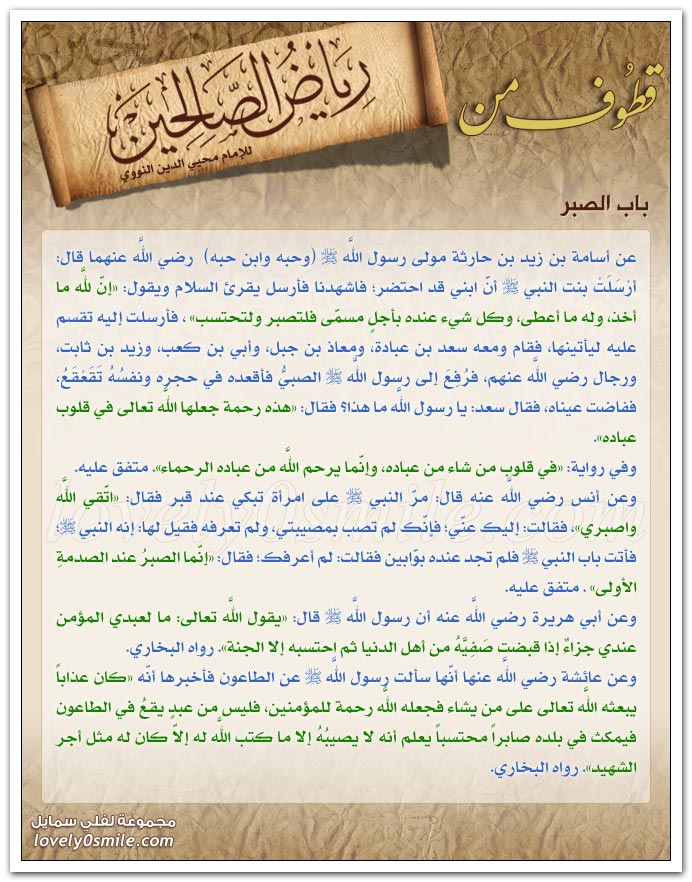 قطوف من
رياض الصالحين
للإمام محيي الدين النووي
باب الصبر
عن أسامة بن زيد بن حارثة مولى رسول اللَّه ﷺ (وحبه وابن حبه) رضي اللَّه عنهما قال:
أرْسَلَتْ بنت النبي ﷺ أنّ ابني قد احتضر؛ فاشهدنا فأرسل يقرئ السلام ويقول: «إنّ للَّه ما
أخذ، وله ما أعطى، وكل شيء عنده بأجلٍ مسمّى فلتصبر ولتحتسب» ، فأرسلت إليه تقسم
عليه ليأتينها، فقام ومعه سعد بن عبادة، ومعاذ بن جبل، وأبي بن كعب، وزيد بن ثابت،
ورجال رضي اللَّه عنهم، فرُفِعَ إلى رسول اللَّه ﷺ الصبيُّ فأقعده في حجره ونفسُهُ تَقَعْقَعُ،
ففاضت عيناه، فقال سعد: يا رسول اللَّه ما هذا؟ فقال: «هذه رحمة جعلها اللَّه تعالى في قلوب
عباده».
وفي رواية: «في قلوب من شاء من عباده، وإنّما يرحم اللَّه من عباده الرحماء». متفق عليه.
وعن أنس رضي اللَّه عنه قال: مرّ النبي ﷺ على امرأة تبكي عند قبر فقال: «اتّقي اللَّه
واصبري»، فقالت: إليك عنّي؛ فإنّك لم تصب بمصيبتي، ولم تعرفه فقيل لها: إنه النبي ﷺ؛
فأتت باب النبي ﷺ فلم تجد عنده بوّابين فقالت: لم أعرفك؛ فقال: «إنّما الصبرُ عند الصدمةِ
الأولى» . متفق عليه.
وعن أبي هريرة رضي اللَّه عنه أن رسول اللَّه ﷺ قال: «يقول اللَّه تعالى: ما لعبدي المؤمن
عندي جزاءٌ إذا قبضت صَفِيَّهُ من أهل الدنيا ثم احتسبه إلا الجنة». رواه البخاري.
وعن عائشة رضي اللَّه عنها أنّها سألت رسول اللَّه ﷺ عن الطاعون فأخبرها أنّه «كان عذاباً
يبعثه اللَّه تعالى على من يشاء فجعله اللَّه رحمة للمؤمنين، فليس من عبدٍ يقعُ في الطاعون
فيمكث في بلده صابراً محتسباً يعلم أنه لا يصيبُهُ إلا ما كتب اللَّه له إلاّ كان له مثل أجر
الشهيد». رواه البخاري.
lovely0smile.com
مجموعة لفلي سمايل
lovely0smile.com